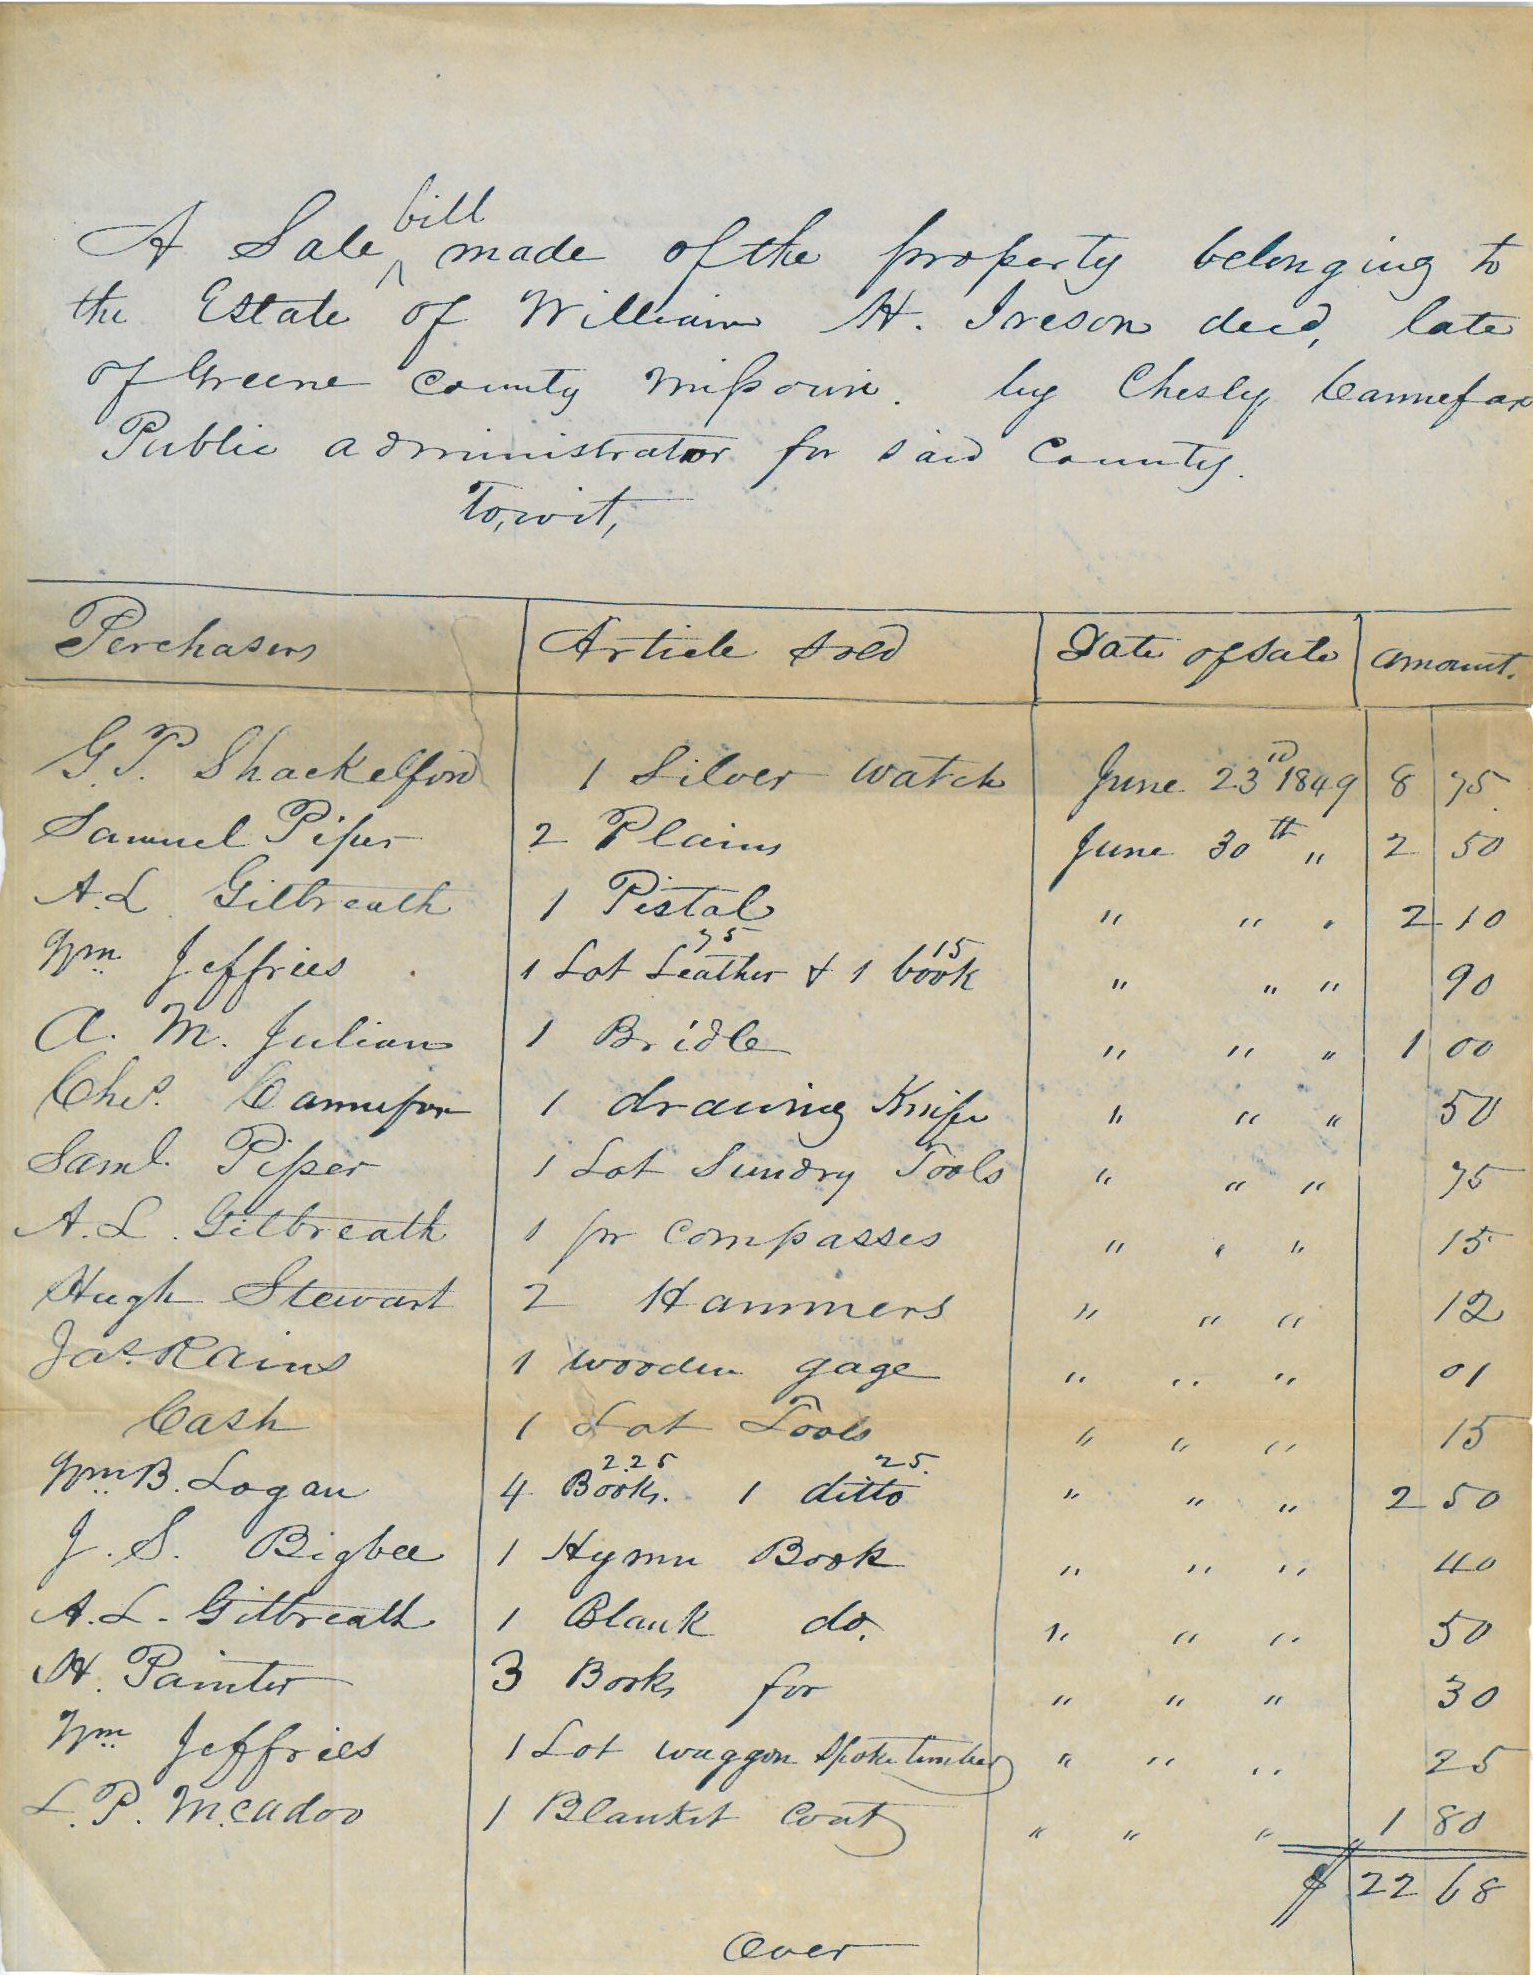 A Sale bill made of the property belonging to
the Estate of William H. Ireson decd, late
of Greene County Missouri. by Chesly Cannefax
Public administrator for said County.
To,wit,
Perchasers Article sold Date of Sale amount.
G. P. Shackelford 1 Silver watch June 23rd 1849 8 75
Samuel Piper 2 Plains June 30th " 2 50
A. L. Gilbreath 1 Pistal " " " 2 10
75 15
Wm Jeffries 1 Lot Leather & 1 book " " " 90
A. M. Julian 1 Bridle " " " 1 00
Ches. Cannefax 1 drawing Knife " " " 50
Saml. Piper 1 Lot Sundry Tools " " " 75
A. L. Gilbreath 1 pr Compasses " " " 15
Hugh Stewart 2 Hammers " " " 12
Jas Rains 1 wooden gage " " " 01
Cash 1 Lot Tools " " " 15
2.25 25.
Wm B. Logan 4 Books. 1 ditto " " " 2 50
J. S. Bigbee 1 Hymn Book " " " 40
A. L. Gilbreath 1 Blank do. " " " 50
H. Painter 3 Books for " " " 30
Wm Jeffries 1 Lot waggon Spoke timber " " " 25
L. P. McAdoo 1 Blanket Coat " " " 1 80
$ 22 68
Over